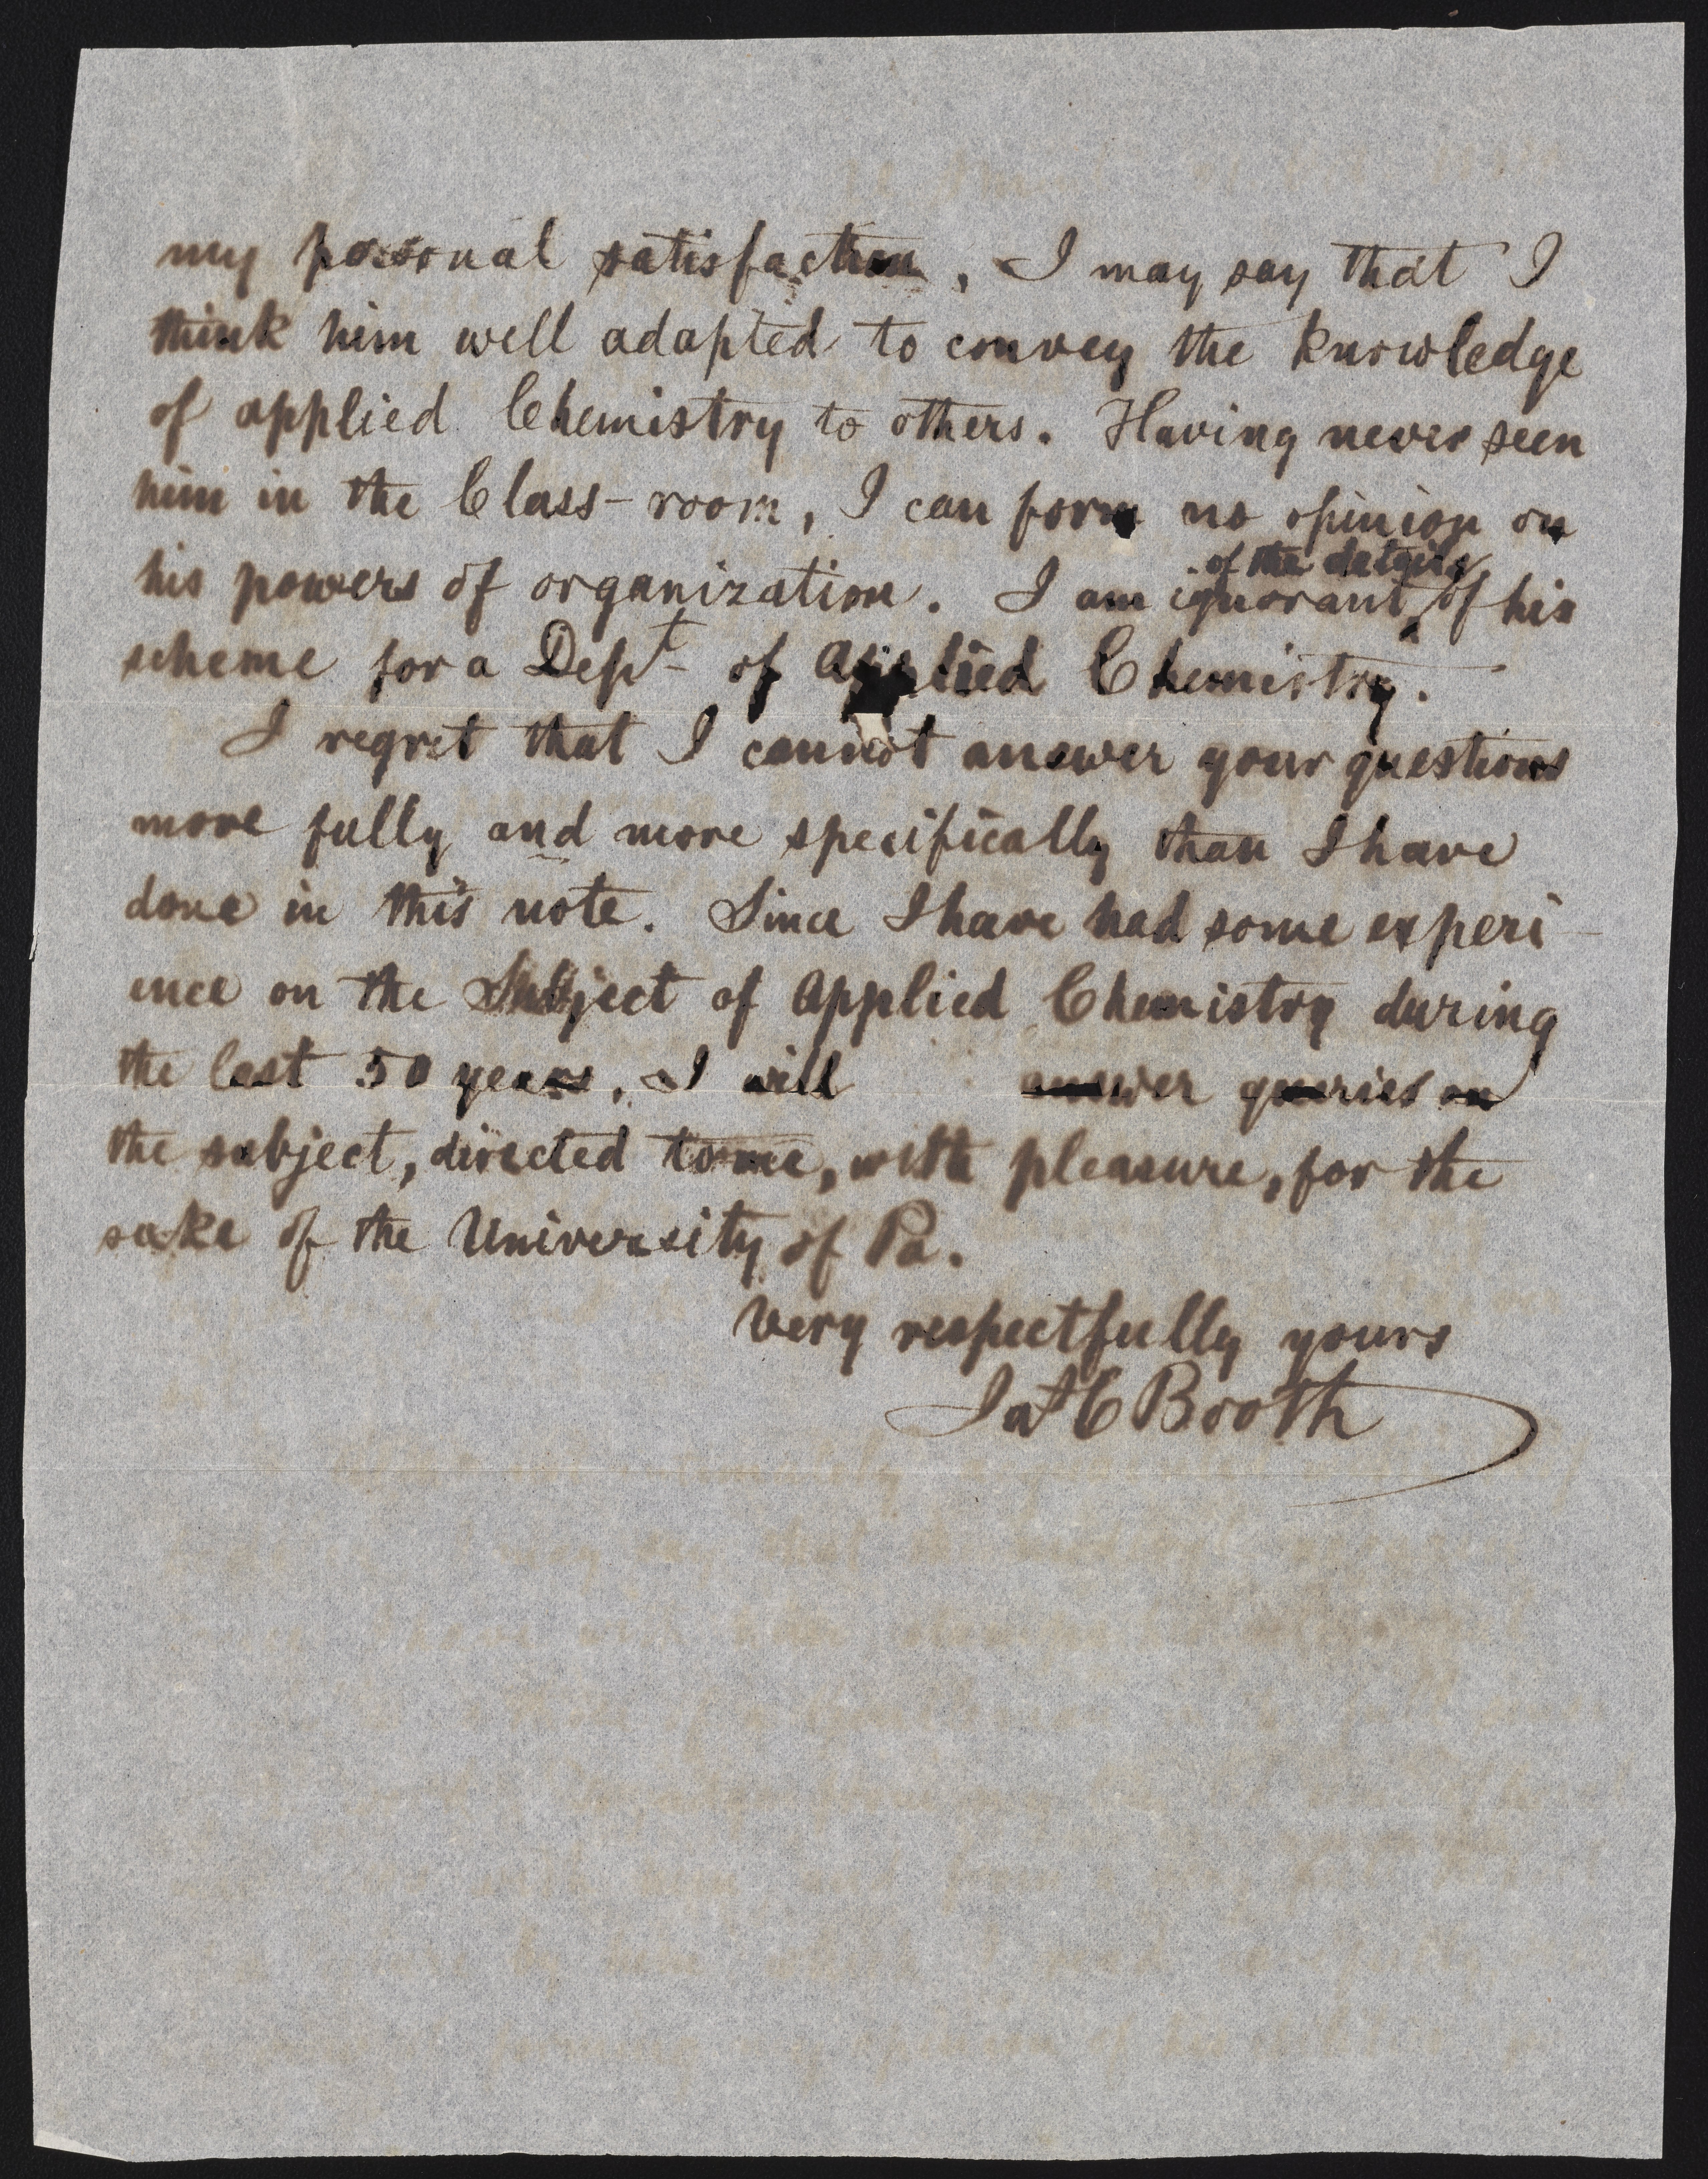 my personal satisfaction, I may say that I
think him well adapted to convey the knowledge
of applied Chemistry to others. Having never seen
him in the Class-room, I can form no opinion on
of the details
his powers of organization. I am ignorant of his
scheme for a Dept of Applied Chemistry.
I regret that I cannot answer your questions
more fully and more specifically than I have
done in this note. Since I have had some experi-
ence on the Subject of Applied Chemistry during
the last 50 years, I will answer queries on
the subject, directed to me, with pleasure, for the
sake of the University of Pa.
Very respectfully yours
Jas C Booth